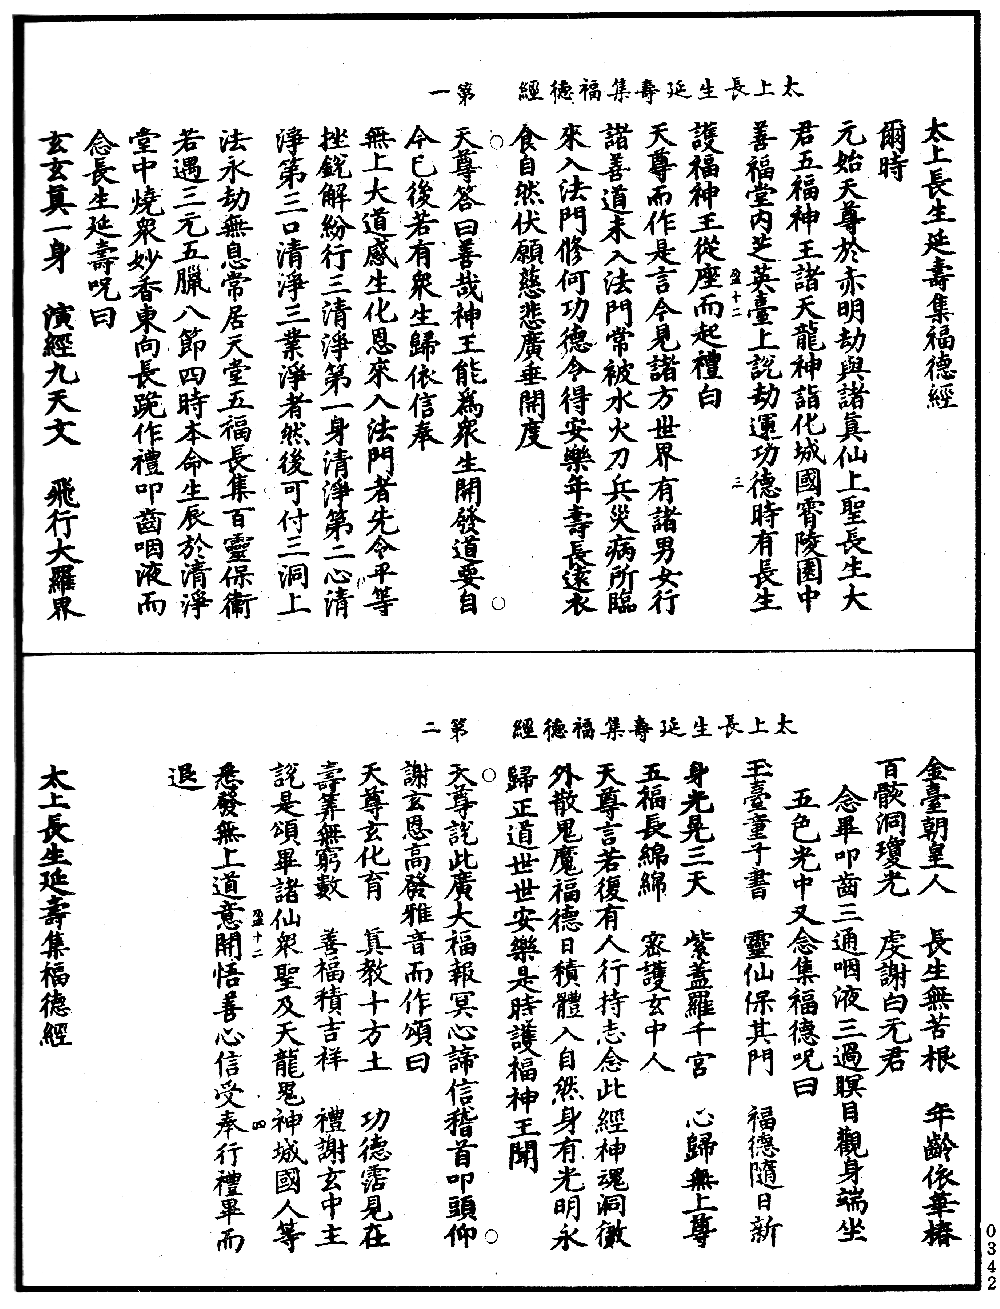 太上長生延壽集福德經 第一
太上長生延壽集福德經
爾時
元始天尊於赤明劫與諸真仙上聖長生大
君五福神王諸天龍神詣化城國霄陵園中
善福堂內芝英臺上說劫運功德時有長生
盈十二 三
護福神王從座而起禮白
天尊而作是言今見諸方世界有諸男女行
諸善道未入法門常被水火刀兵災病所臨
來入法門修何功德令得安樂年壽長遠衣
食自然伏願慈悲廣垂開度
天尊荅曰善哉神王能為眾生開發道要自
今已後若有眾生歸依信奉
無上大道感生化恩來入法門者先令平等
挫銳解紛行三清淨第一身清淨第二心清
淨第三口清淨三業淨者然後可付三洞上
法永劫無息常居天堂五福長集百靈保衛
若遇三元五臘八節四時本命生辰於清淨
堂中燒眾妙香東向長跪作禮叩齒咽液而
念長生延壽呪曰
玄玄真一身 演經九天文 飛行大羅界
太上長生延壽集福德經 第二
金臺朝皇人 長生無苦根 年齡依華椿
百骸洞瓊光 虔謝白元君
念畢叩齒三通咽液三過瞑目觀身端坐
五色光中又念集福德呪曰
玉臺童子書 靈仙保其門 福德隨日新
身光晃三天 紫蓋羅千宮 心歸無上尊
五福長綿綿 密護玄中人
天尊言若復有人行持志念此經神魂洞徹
外散鬼魔福德日積體入自然身有光明永
歸正道世世安樂是時護福神王聞
天尊說此廣大福報冥心諦信稽首叩頭仰
謝玄恩高發雅音而作頌曰
天尊玄化育 真教十方土 功德霑見在
壽筭無窮數 善福積吉祥 禮謝玄中主
說是頌畢諸仙眾聖及天龍鬼神城國人等
盈十二 四
悉發無上道意開悟善心信受奉行禮畢而
退
太上長生延壽集福德經
0342